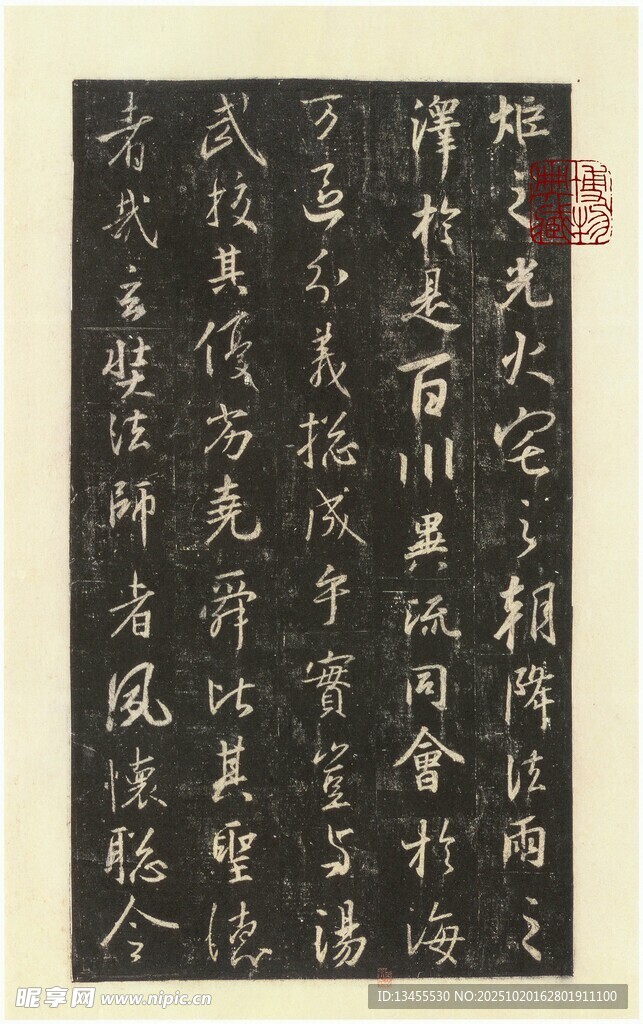 炬之光火宅之朝降法雨之
澤於是百川異流同會於海
万區分義揔成乎實豈与湯
武挍其優劣堯舜比其聖德
者哉玄奘法師者夙懷聰令
博物
典藏
昵享网 www.nipic.cn
ID:13455530 NO:20251020162801911100